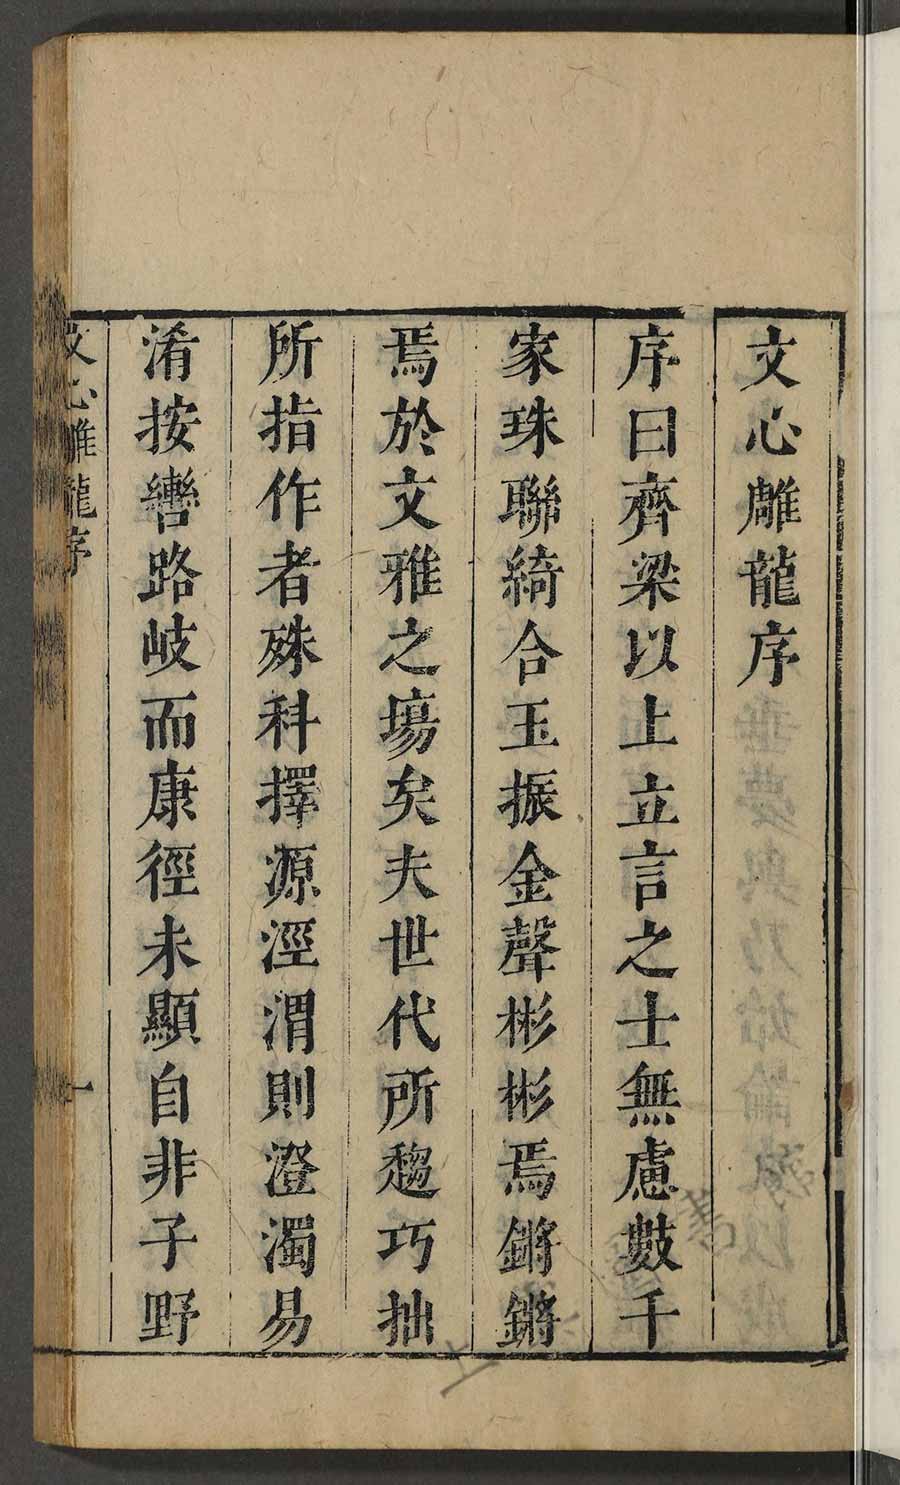 文心雕龍序
序曰齊梁以上立言之士無慮數千
家珠聯綺合玉振金聲彬彬焉鏘鏘
焉於文雅之塲矣夫世代所趨巧拙
所指作者殊科擇源涇渭則澄濁易
淆按轡路岐而康徑未顯自非子野
文心雕龍序
一